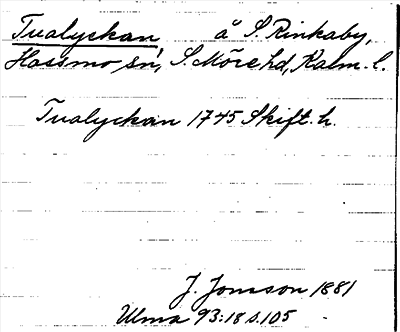 Tvalyckan, å S. Rinkaby,
Hossmo sn, S. Möre hd, Kalm. l.
Tvalyckan 1745 Skift. h.
J. Jonsson 1881
Ulma 93:18 s. 105